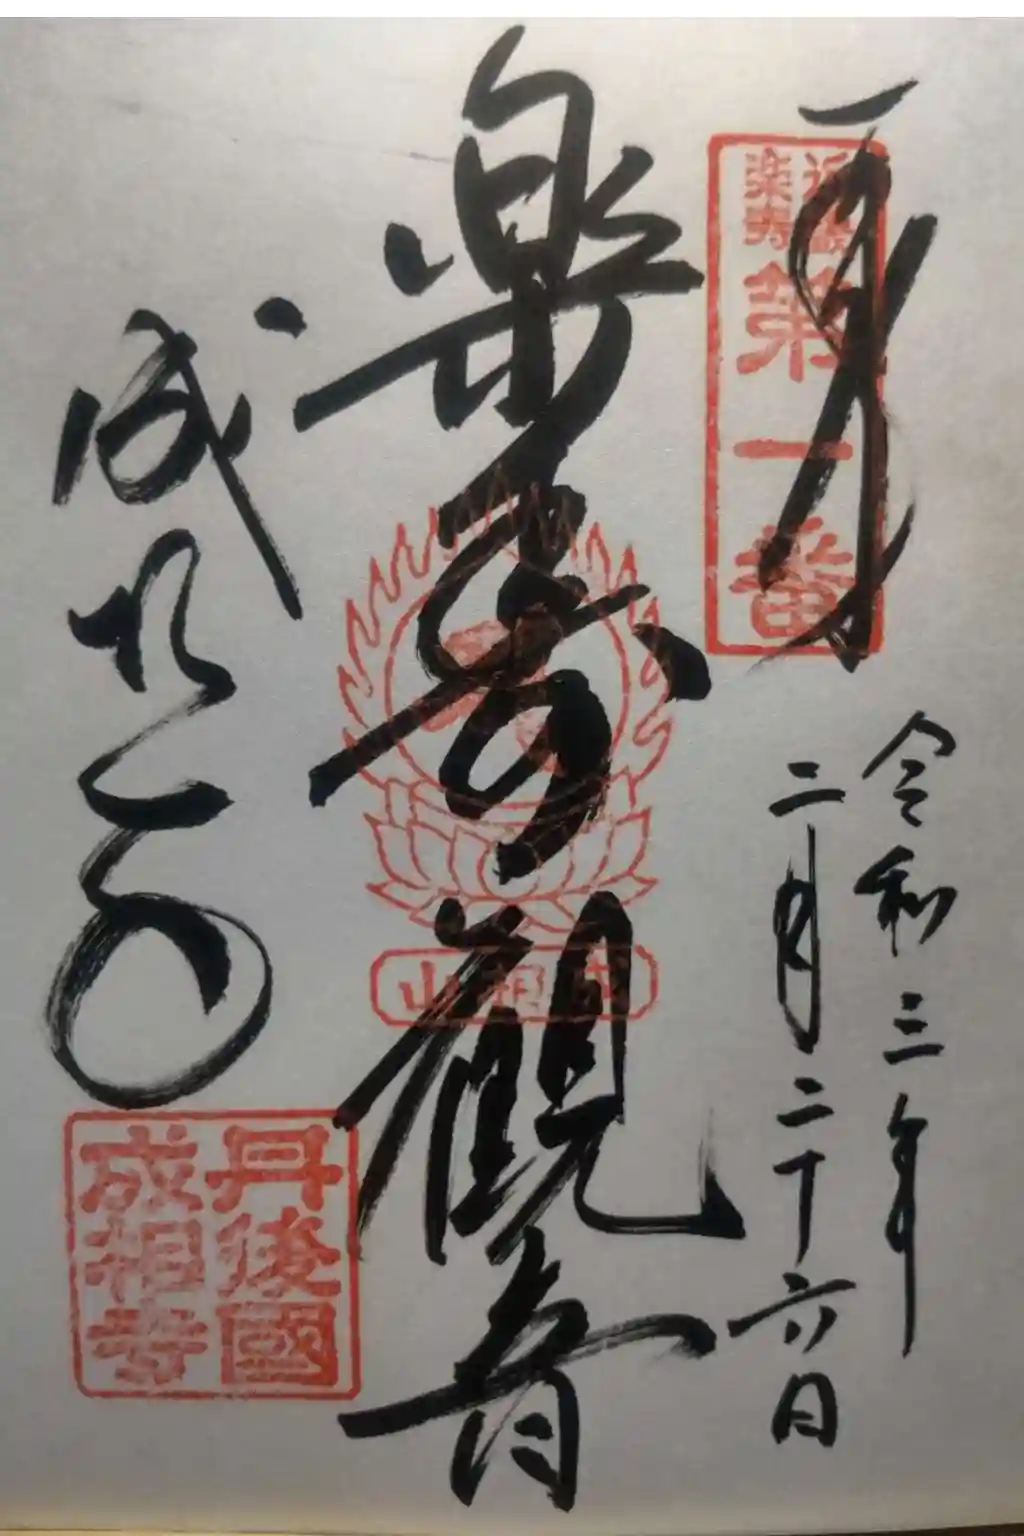 奉拝
近畿
楽寿
第一番
令和三年
二月二十六日
楽寿観音
成相山
成相寺
丹後國
成相寺